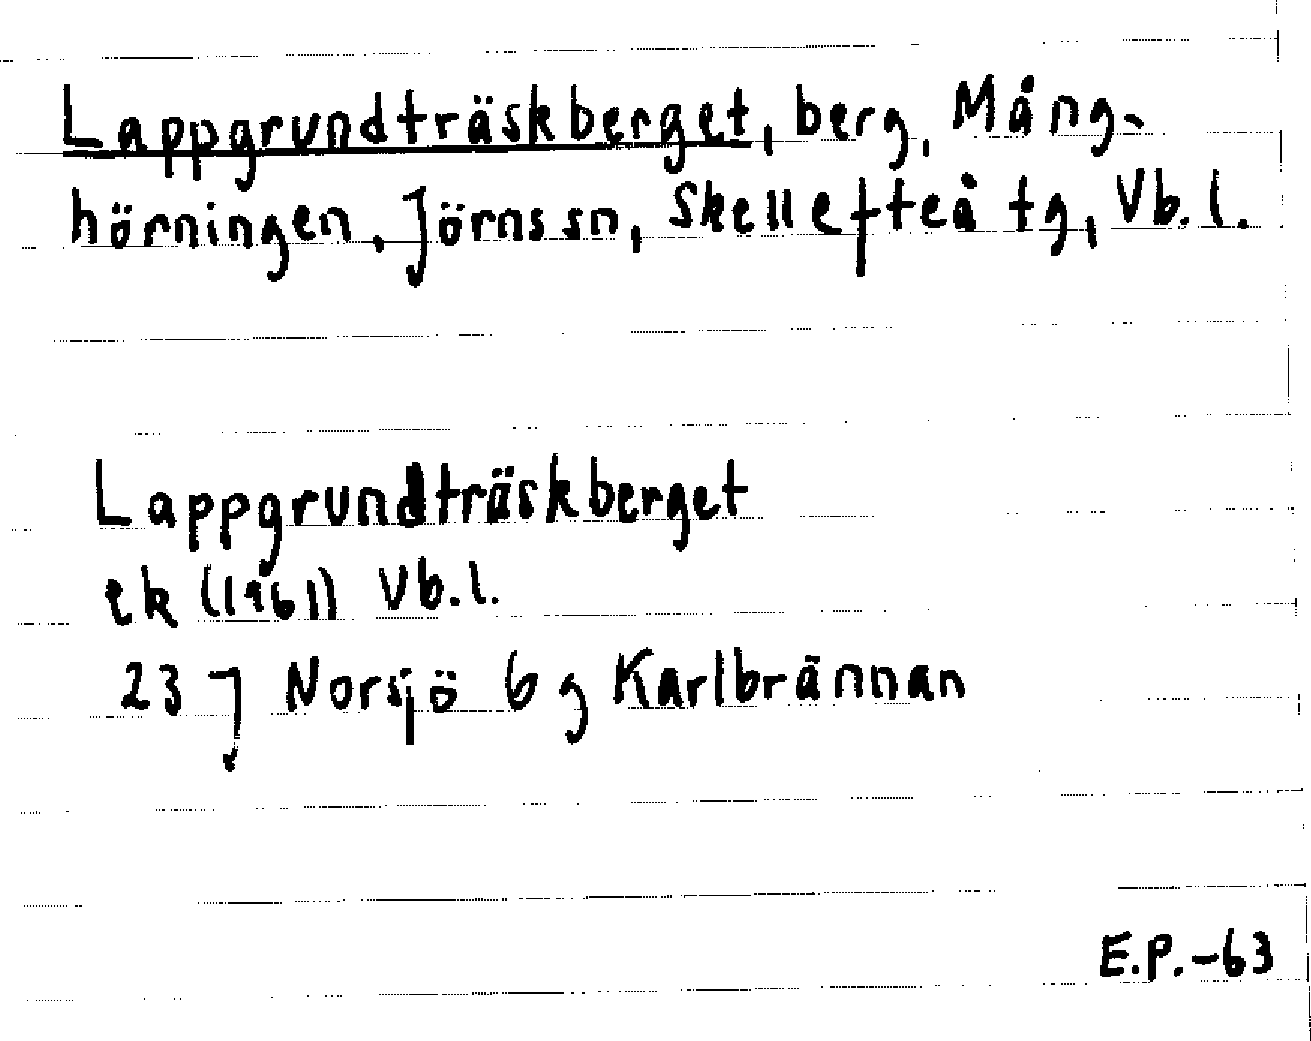 Lappgrundträskberget, berg, Mång-
hörningen, Jörns sn, Skellefteå tg, Vb.l.
Lappgrundträskberget
ek (1961) Vb.l.
23 J Norsjö 6 g Karlbrännan
E.P.-63